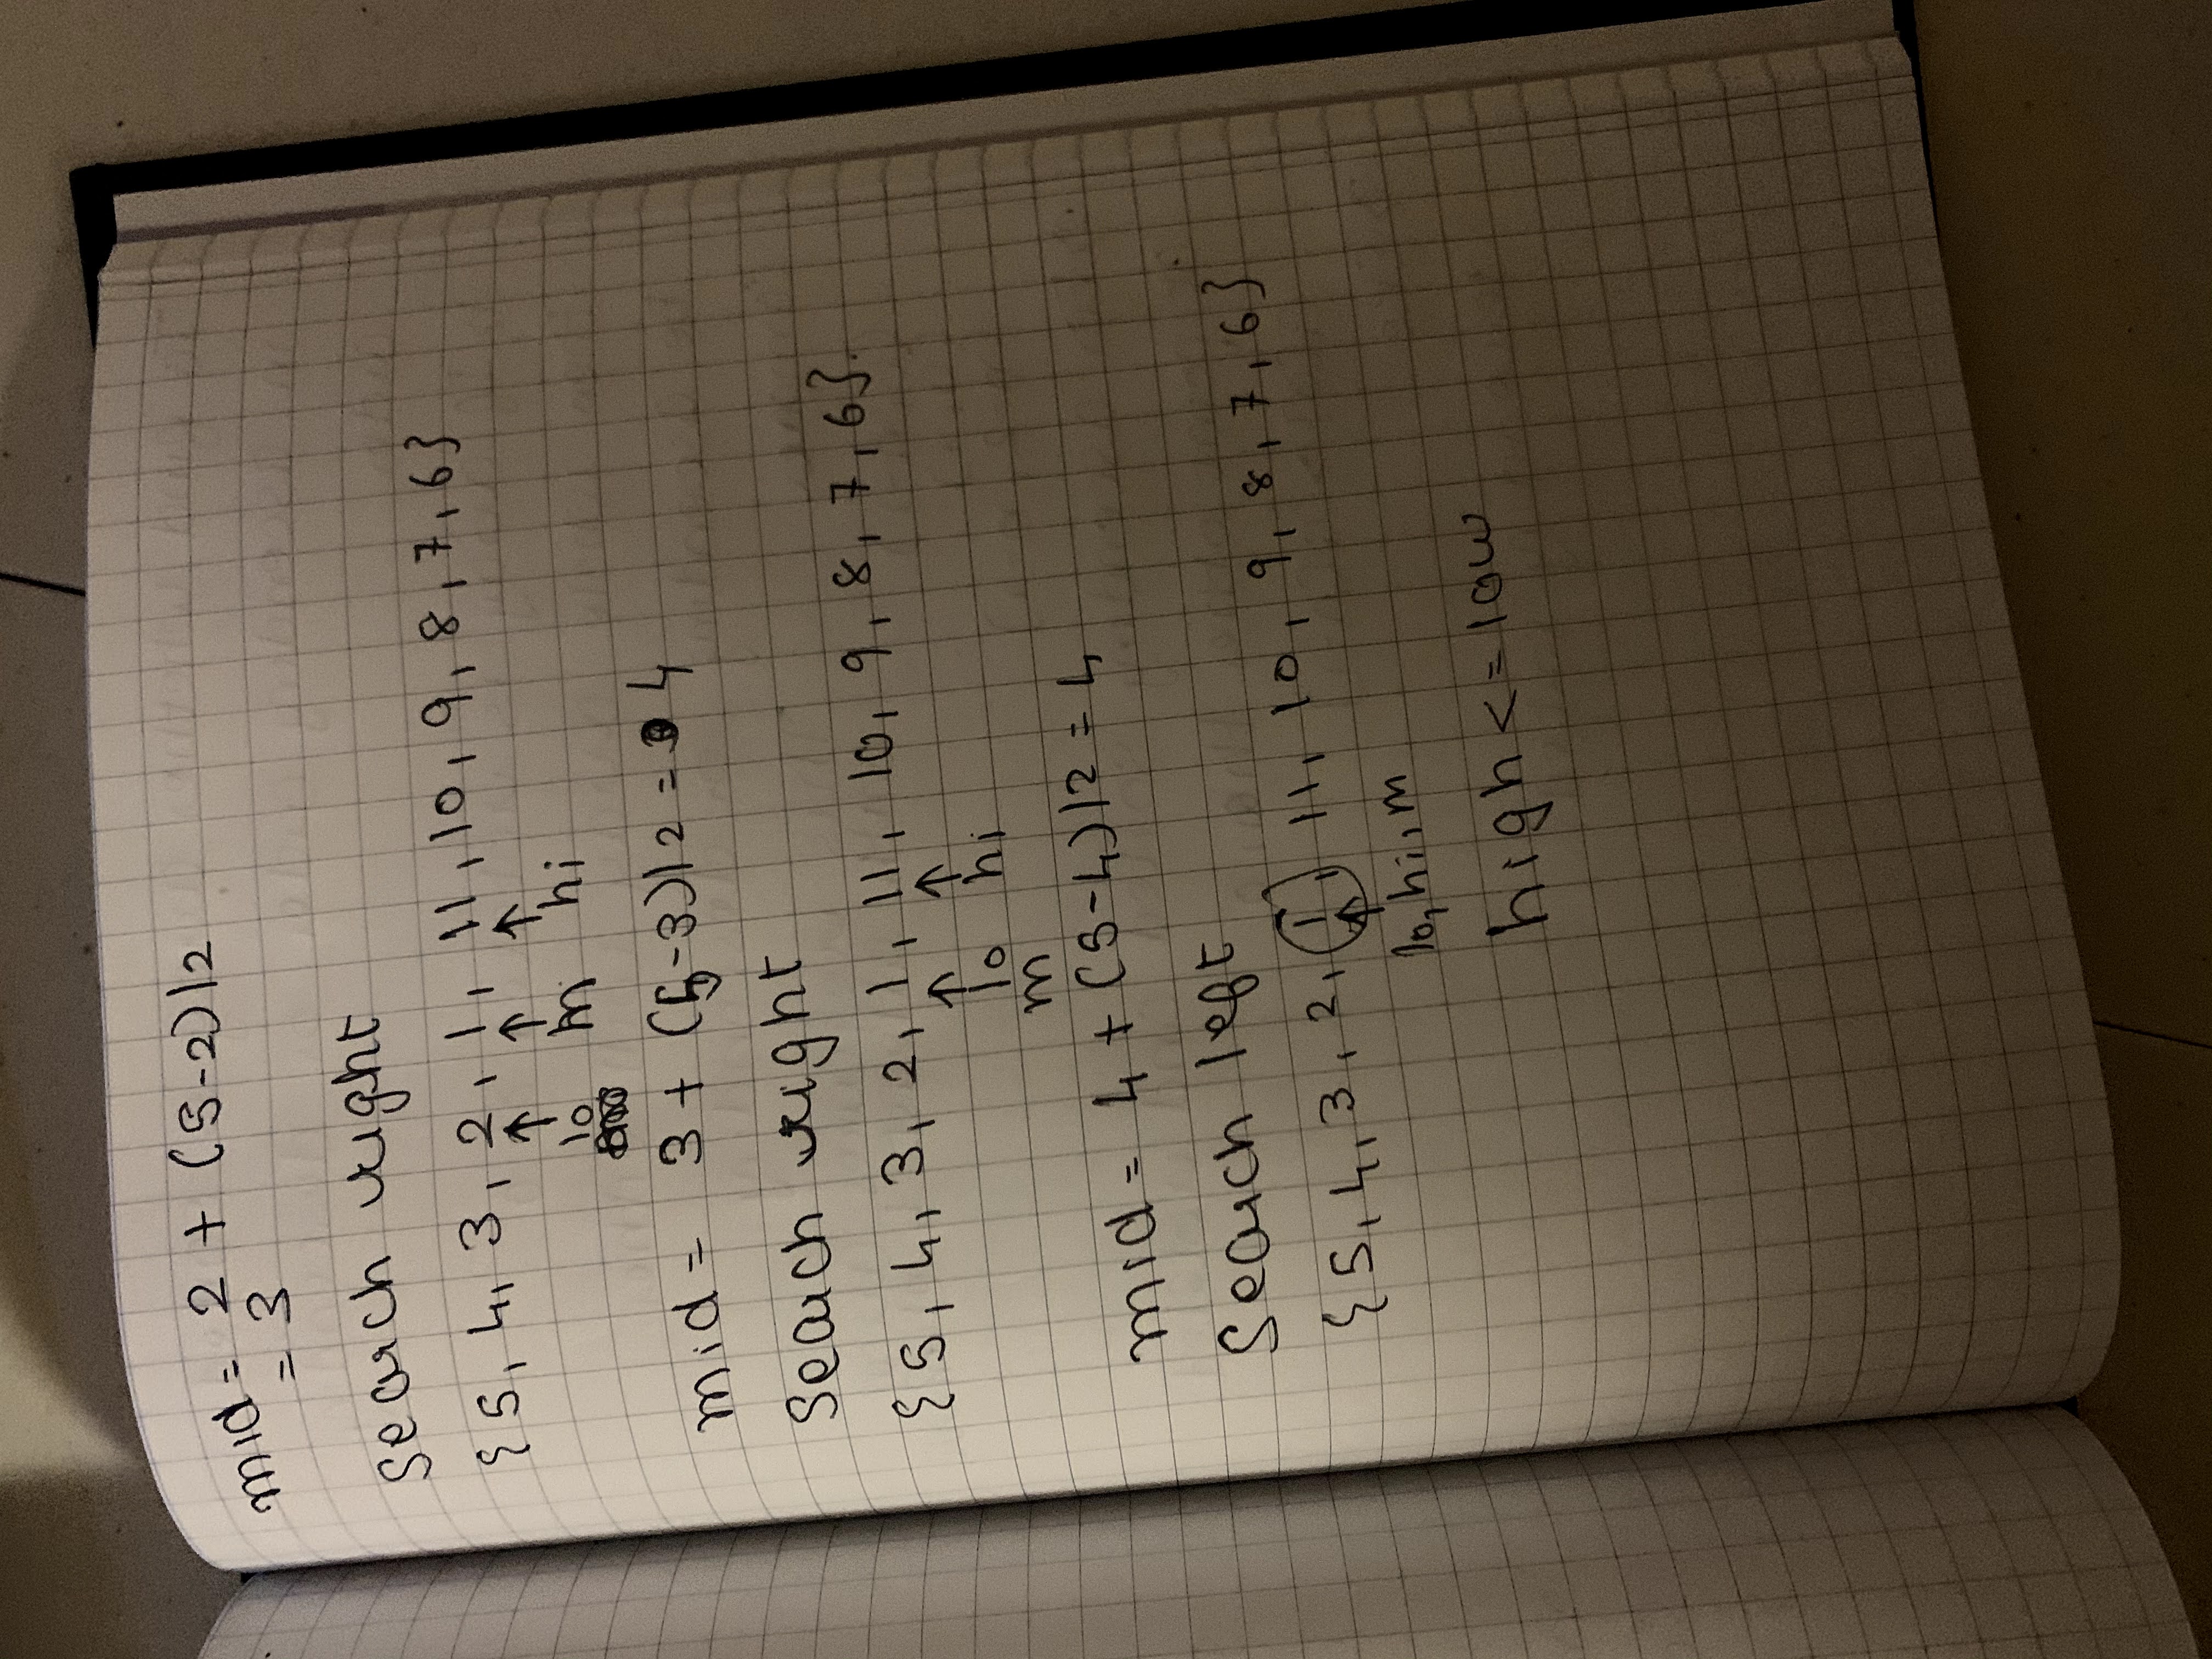 mid = 2 + (5-2)/2
= 3
Search right
{5, 4, 3, 2, 1, 11, 10, 9, 8, 7, 6}
↑ ↑ ↑
lo m hi
mid = 3 + (5-3)/2 = 4
Search right
{5, 4, 3, 2, 1, 11, 10, 9, 8, 7, 6}.
↑ ↑
lo hi
m
mid = 4 + (5-4)/2 = 4
Search left
{5, 4, 3, 2, 1, 11, 10, 9, 8, 7, 6}
↑
lo, hi, m
high <= low